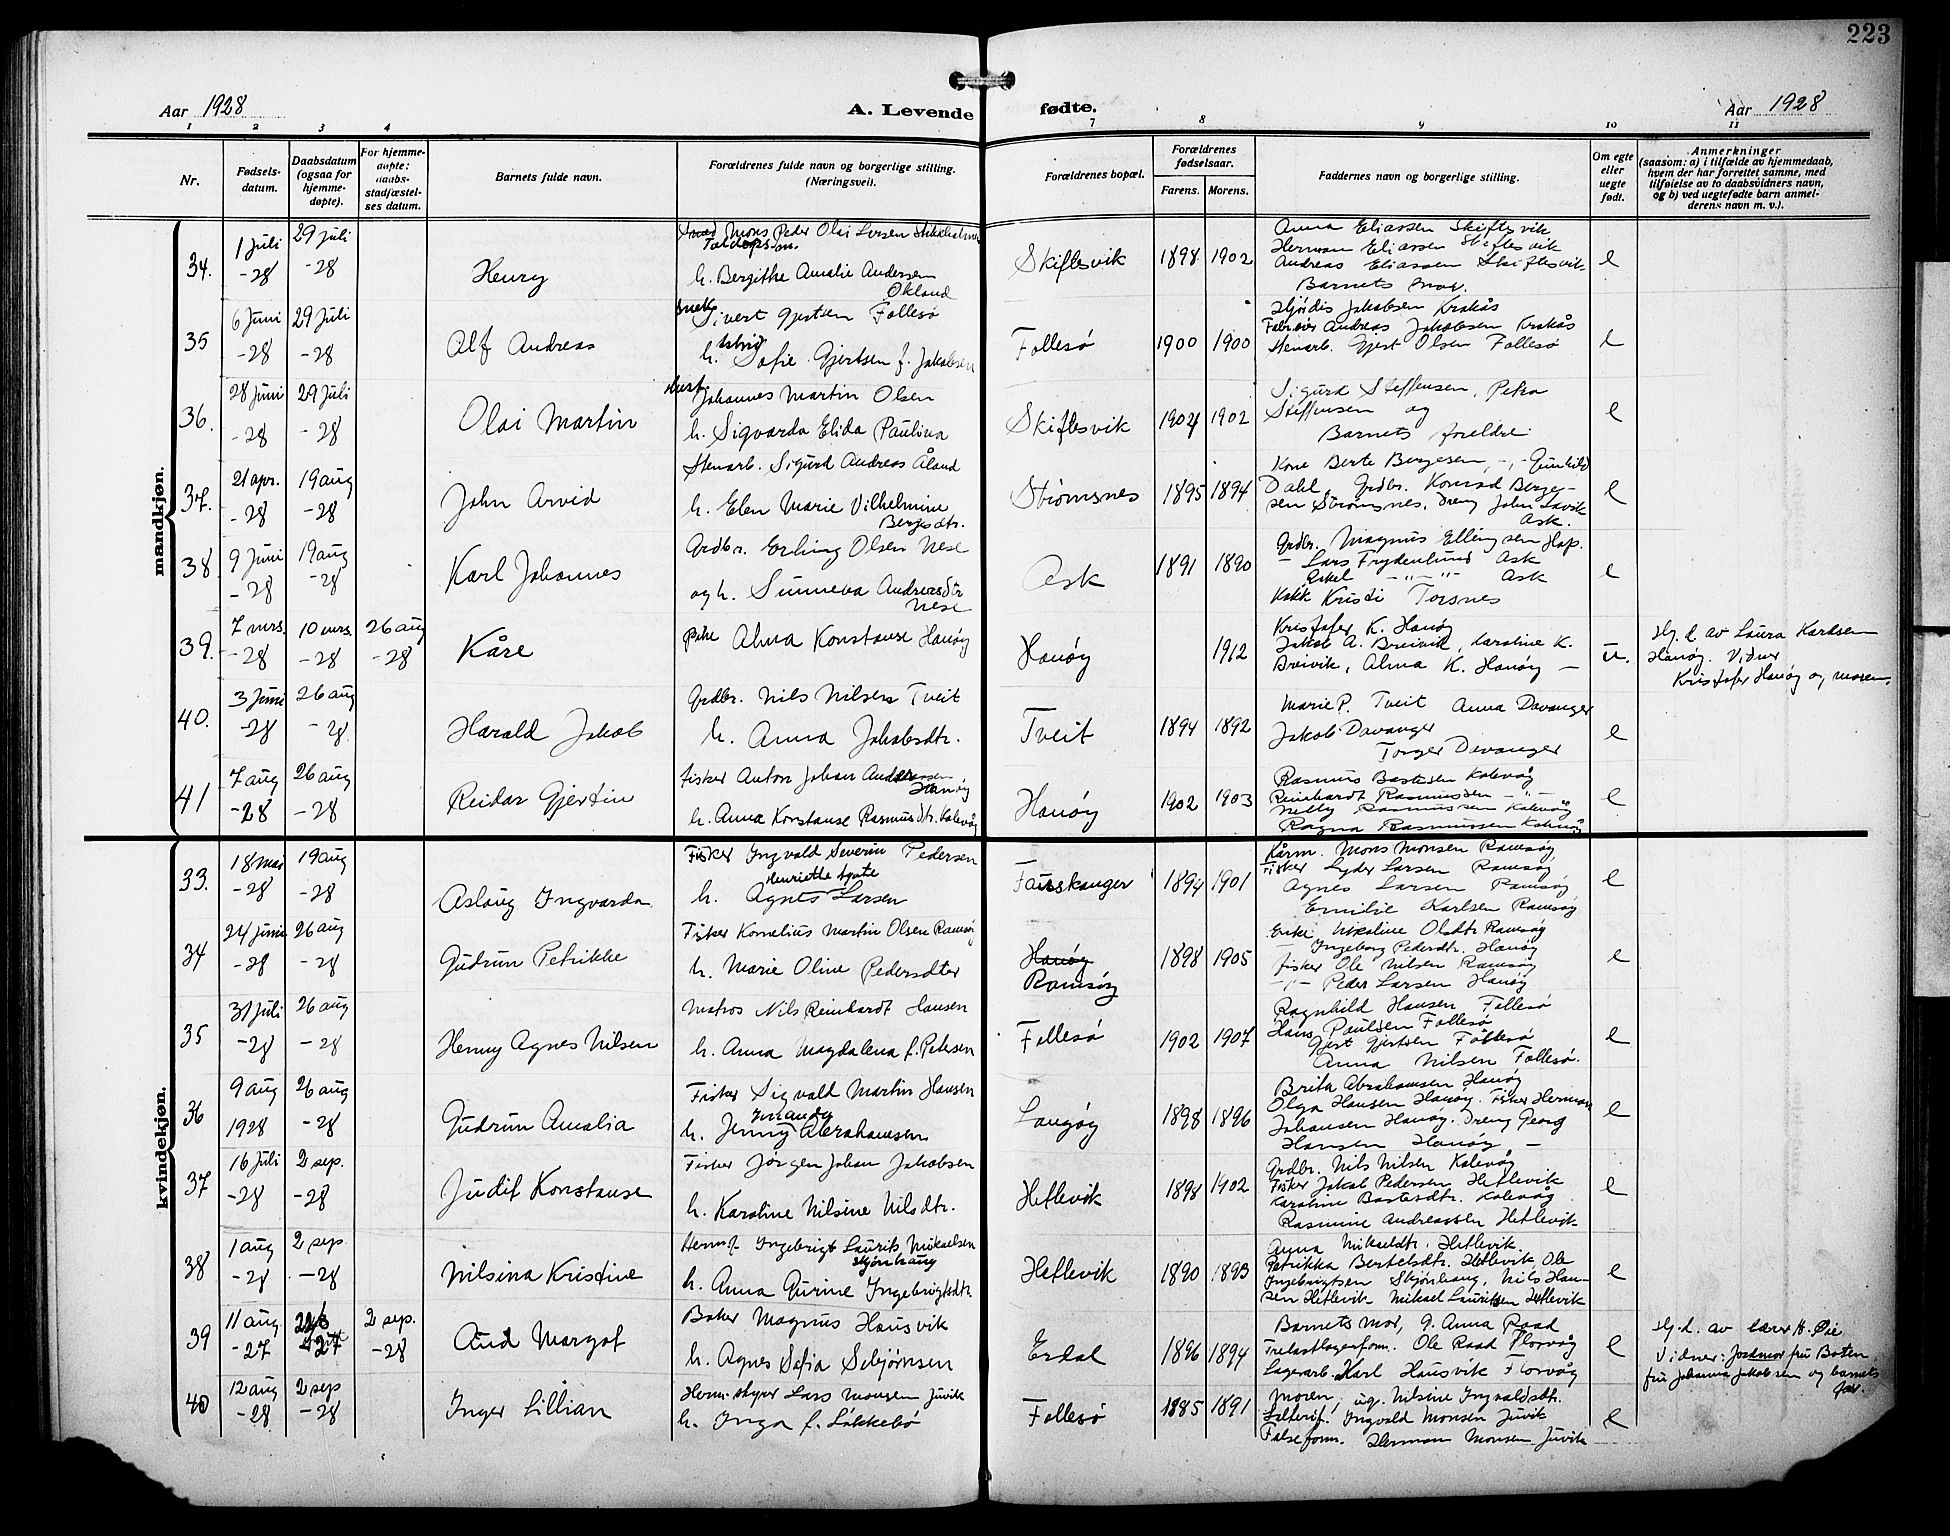 223
Aar 1928
A. Levende fødte.
Aar 1928
1 2 3 4 7 8 9 10 11
Nr.
Fødsels-
datum.
Daabsdatum
(ogsaa for
hjemme-
døpte).
For hjemme-
døpte:
daabs-
stadfæstel-
ses datum.
Barnets fulde navn.
Forældrenes fulde navn og borgerlige stilling.
(Næringsvei).
Forældrenes bopæl.
Forældrenes
fødselsaar.
Farens. Morens.
Faddernes navn og borgerlige stilling.
Om egte
eller
uegte
født.
Anmerkninger
(saasom: a) i tilfælde av hjemmedaab,
hvem der har forrettet samme, med
tilføielse av to daabsvidners navn,
og b) ved uegtefødte barn anmel-
derens navn m. v.).
mandkjøn.
34. 1 juli -28 29 juli -28 Henry
Mons Peder Olai
h. Bergithe Amalie Andersen
Økland
Skiflesvik 1898 1902
Anna Eliassen Skiflesvik
Herman Eliassen Skiflesvik
Andreas Eliassen Skiflesvik
Barnets mor. e
35 6 juni -28 29 juli -28 Alf Andreas
Sivert Gjertsen Follesø
h. Sofie Gjertsen f. Jakobsen
Follesø 1900 1900
Hjørdis Jakobsen Krakås
Andreas Jakobsen Krakås
Stenarb. Gjert Olsen Follesø e
36. 28 juni -28 29 juli -28 Olai Martin
Johannes Martin Olsen
h. Sigvarda Elida Paulina
Skiflesvik 1904 1902
Sigurd Steffensen, Petra
Steffensen og
Barnets foreldre e
37. 21 apr. -28 19 aug -28 John Arvid
Stenarb. Sigurd Andreas Åland
h. Elen Marie Vilhelmine
Bergesdtr.
Strømsnes 1895 1894
Kone Berte Bergesen, -,- Gunhild
Dahl, Grdbr. Konrad Berge-
sen Strømsnes, Dreng John Lavik
Ask. e
38 9 juni -28 19 aug -28 Karl Johannes
Grdbr. Erling Olsen Nese
og h. Sunneva Andreasdtr
Nese
Ask 1891 1890
Grdbr. Magnus Ellingsen Hop.
- Lars Frydenlund Ask
Askel -"- -"- Ask
Kokk Kristi Torsnes e
39. 7 mrs. -28 10 mrs. -28 26 aug -28 Kåre
Pike Alma Konstanse Hanøy
Hanøy 1912
Kristofer K. Hanøy
Jakob A. Breivik, Karoline K.
Breivik, Alma K. Hanøy - u.
Hj. d. av Laura Karlsen
Hanøy. Vidner
Kristofer Hanøy og moren.
40. 3 juni -28 26 aug -28 Harald Jakob
Grdbr. Nils Nilsen Tveit
h. Anna Jakobsdtr.
Tveit 1894 1892
Marie P. Tveit Anna Davanger
Jakob Davanger
Torger Davanger e
41 7 aug -28 26 aug -28 Reidar Gjertin
Fisker Anton Johan Andreassen
Hanøy
h. Anna Konstanse Rasmusdtr. Kalevåg
Hanøy 1902 1903
Rasmus Bastesen Kalevåg
Reinhardt Rasmussen -"-
Nelly Rasmussen Kalevåg
Ragna Rasmussen Kalevåg e
kvindekjøn.
33. 18 mai -28 19 aug -28 Aslaug Ingvarda
Fisker Ingvald Severin Pedersen
Henriette Agate
h. Agnes Larsen
Fauskanger 1894 1901
Kårm. Mons Monsen Ramsøy
Fisker Lyder Larsen Ramsøy
Agnes Larsen Ramsøy
Emilie Karlsen Ramsøy e
34 24 juni -28 26 aug -28 Gudrun Petrikke
Fisker Kornelius Martin Olsen Ramsøy
h. Marie Oline Pedersdter
Hanøy
Ramsøy 1898 1905
Enke Nikoline Olsdtr Ramsøy
- Ingeborg Pedersdtr. Hanøy
Fisker Ole Nilsen Ramsøy
-"- Peder Larsen Hanøy e
35 31 juli -28 26 aug -28 Henny Agnes Nilsen
Matros Nils Reinhardt Hansen
h. Anna Magdalena f. Petersen
Follesø 1902 1907
Ragnhild Hansen Follesø
Hans Paulsen Follesø
Gjert Gjertsen Follesø
Anna Nilsen Follesø. e
36 9 aug 1928 26 aug -28 Gudrun Amalia
Fisker Sigvald Martin Hansen
h. Jenny Abrahamsen
Langøy 1898 1896
Brita Abrahamsen Hanøy
Olga Hansen Hanøy. Fisker Herman
Johansen Hanøy. Dreng Georg
Hansen Hanøy - e
37 16 juli -28 2 sep. -28 Judit Konstanse
Fisker Jørgen Johan Jakobsen
h. Karoline Nilsine Nilsdtr.
Hetlevik 1898 1902
Grdbr. Nils Nilsen Kalevåg
Fisker Jakob Pedersen Hetlevik
Karoline Bastesdtr. Kalevåg
Rasmine Andreassen Hetlevik e
38 1 aug -28 2 sep -28 Nilsina Kristine
Ingebrigt Laurits Mikaelsen
Skjønhaug
h. Anna Gurine Ingebrigtsdtr
Hetlevik 1890 1893
Anna Mikaeldtr. Hetlevik.
Petrikka Bertelsdtr. Hetlevik, Ole
Ingebrigtsen Skjønhaug, Nils Han-
sen Hetlevik Mikael Lauritsen Hetlevik e
39 11 aug -27 -27 2 sep. -28 Aud Margot
Baker Magnus Hausvik
h. Agnes Sofia Sebjørnsen
Erdal 1896 1894
Barnets mor, g. Anna Raad
Trelastlagerform. Ole Raad Florvåg
Lagerarb. Karl Hausvik Florvåg e
Hj. d. av lærer H. Øie
Vidner: Jordmor fru Boten
fru Johanna Jakobsen og barnets
far.
40 12 aug -28 2 sep -28 Inger Lillian
skyper Lars Monsen Juvik
h. Inga f. Løkkebø
Follesø 1885 1891
Moren, ug. Nilsine Ingvaldsdtr.
Ingvald Monsen Juvik
Falseform. Herman Monsen Juvik e